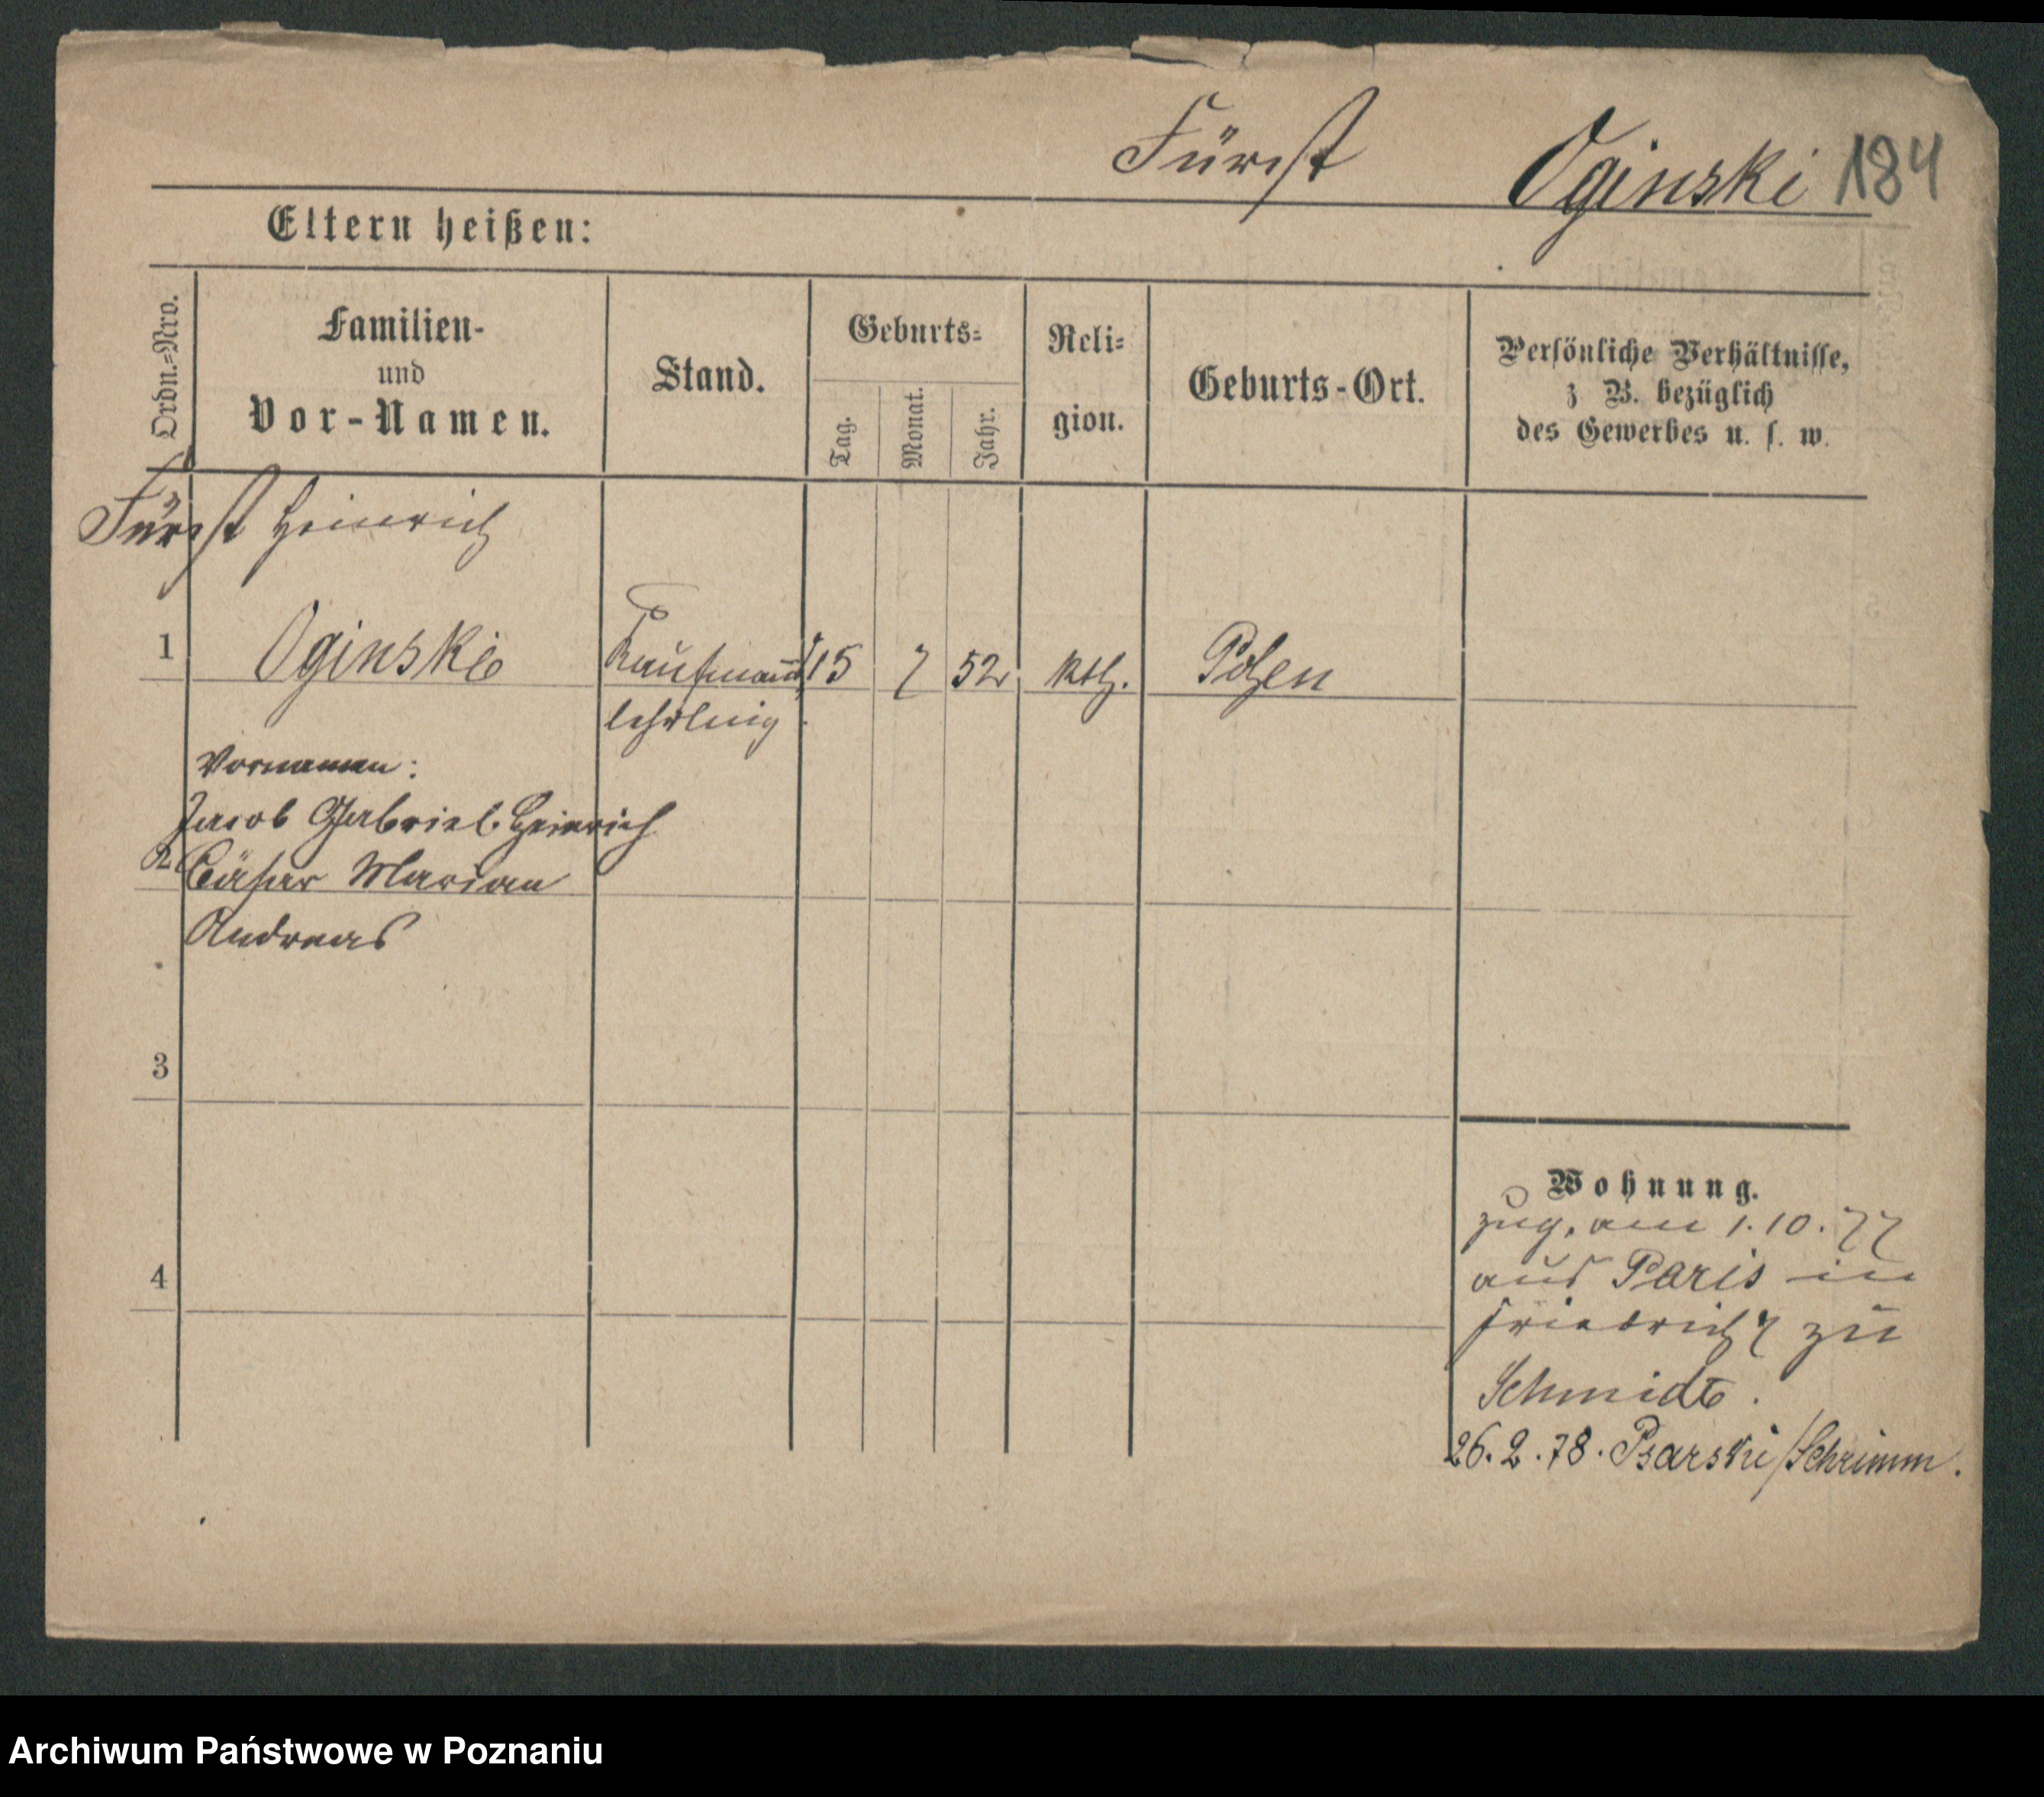 Fürst Oginski 184
Eltern heißen:
Ordn.=Nro.
Familien-
und
Vor-Namen.
Stand.
Geburts=
Tag.
Monat.
Jahr.
Reli=
gion.
Geburts-Ort.
Persönliche Verhältnisse,
z B. bezüglich
des Gewerbes u. s. w.
Fürst Heinrich
1 Oginski Kaufmanns 15 7 52 kth. Posen
lehrling
Vornamen:
Jacob Gabriel Heinrich
2 Cäsar Marian
Andreas
3
4
Wohnung.
zug. am 1.10.77
aus Paris in
Friedrich 7 zu
Schmidt.
26.2.78. Psarski/Schrimm.
Archiwum Państwowe w Poznaniu